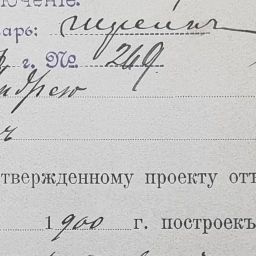 ючение.
арь:
г. № 249
Андрею
твержденному проекту отъ
1900 г. построекъ